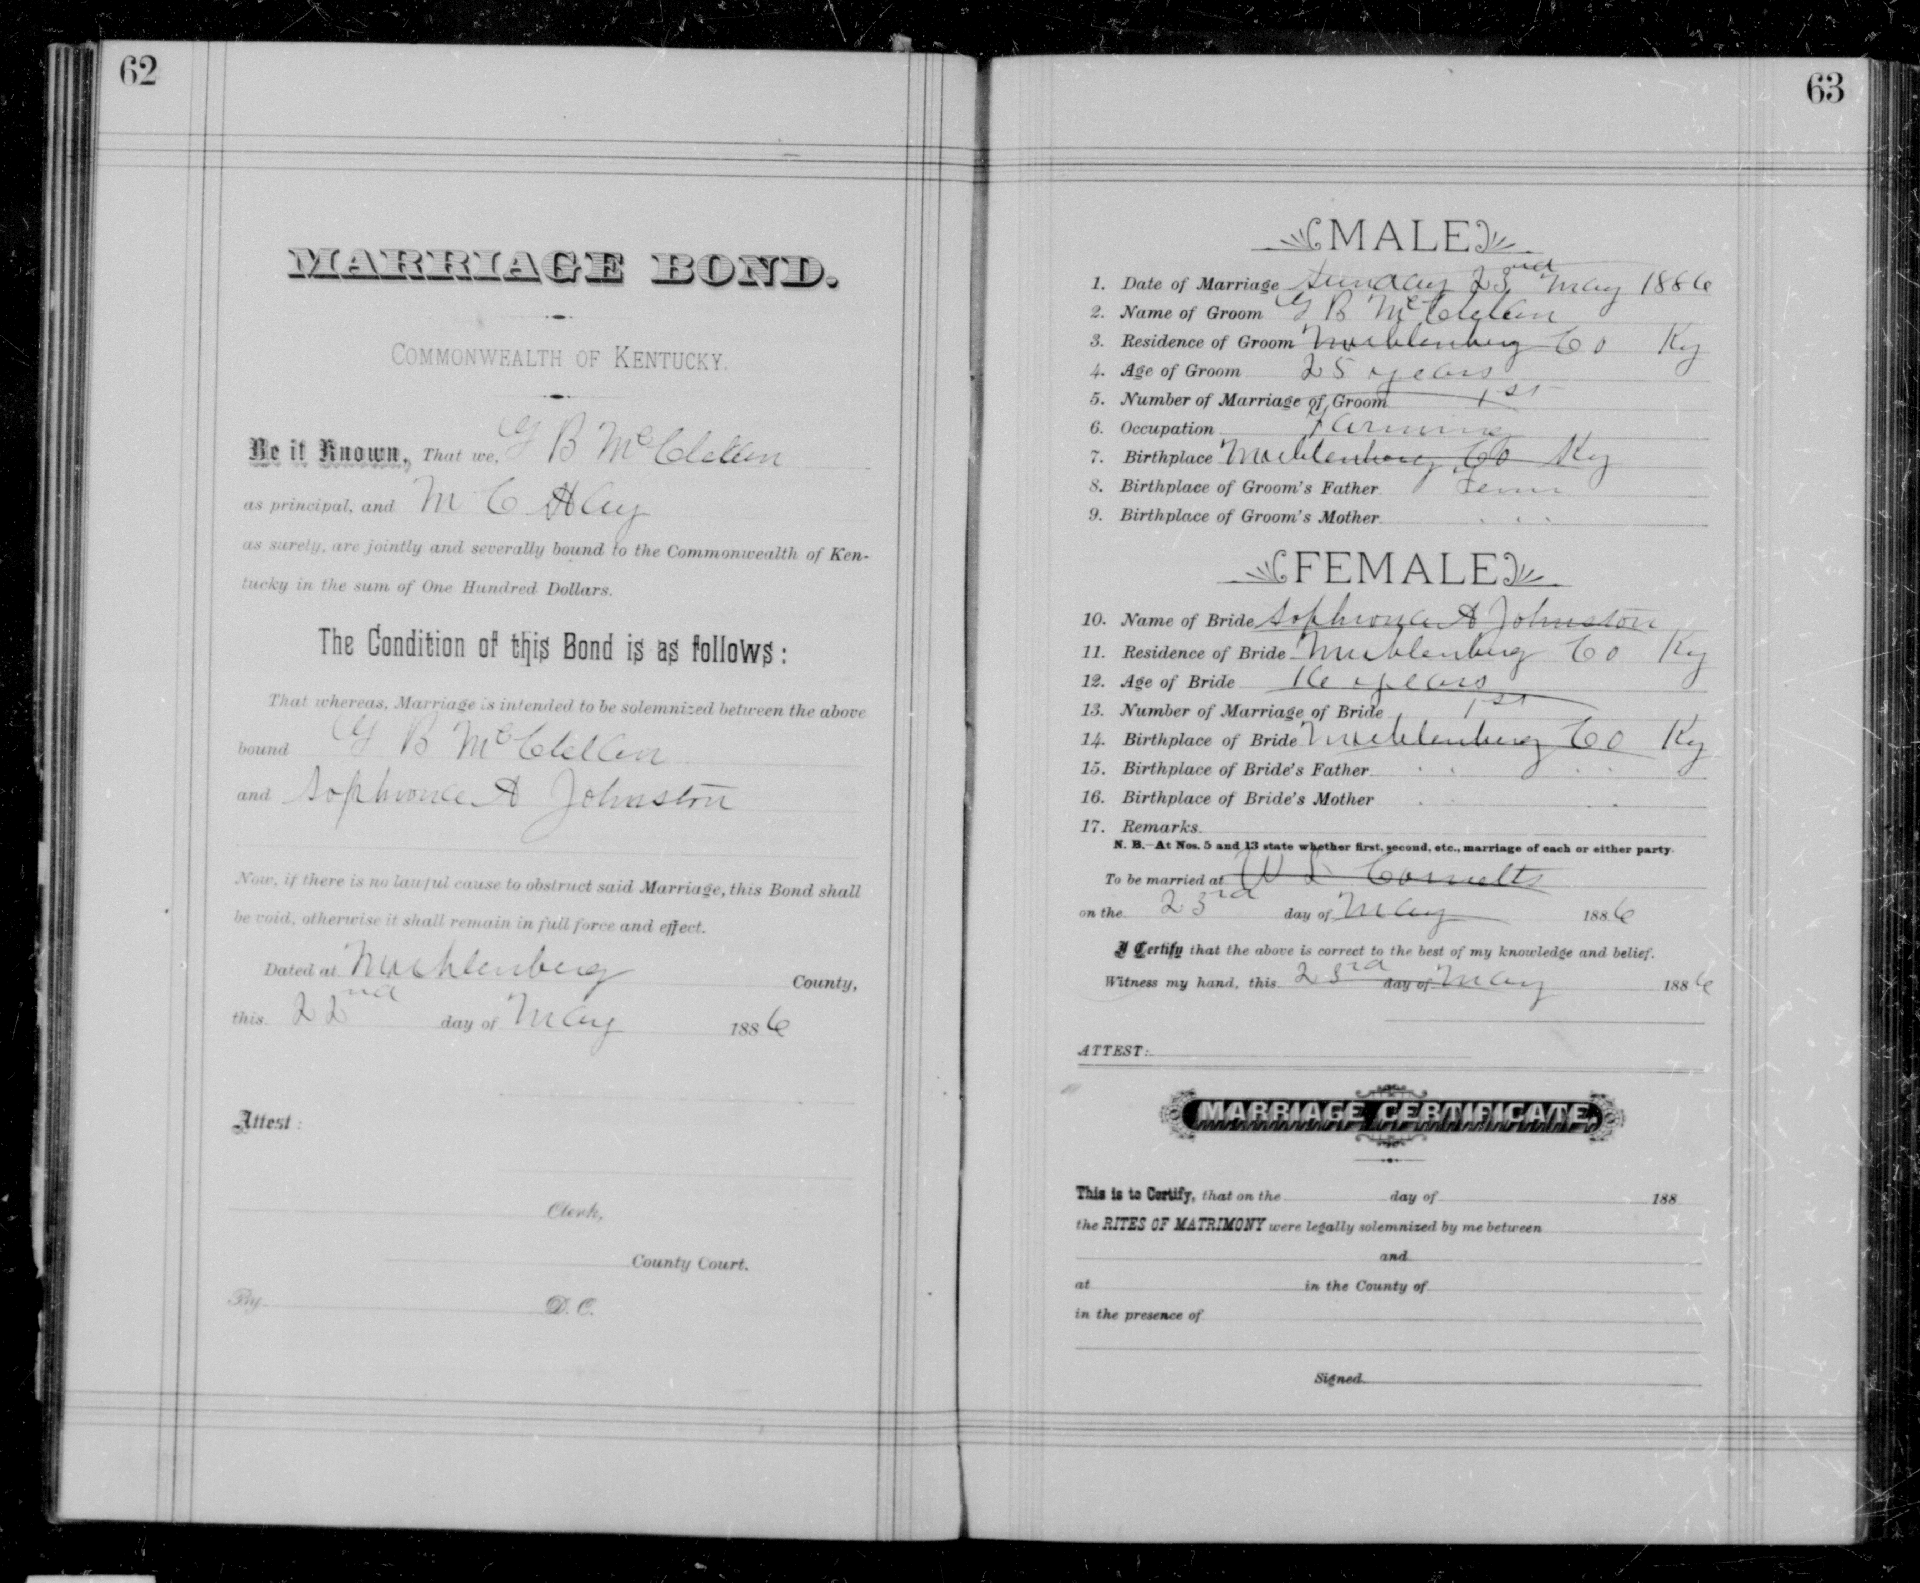 62
MARRIAGE BOND.
COMMONWEALTH OF KENTUCKY.
Be it Known, That we, G B McClellan
as principal, and M C Hay
as surely, are jointly and severally bound to the Commonwealth of Ken-
tucky in the sum of One Hundred Dollars.
The Condition of this Bond is as follows:
That whereas, Marriage is intended to be solemnized between the above
bound G B McClellan
and Sophronia A Johnston
Now, if there is no lawful cause to obstruct said Marriage, this Bond shall
be void, otherwise it shall remain in full force and effect.
Dated at Muhlenberg County,
this 22nd day of May 1886
Attest:
Clerk,
County Court.
By D. C.
63
MALE
1. Date of Marriage Sunday 23rd May 1886
2. Name of Groom G B McClellan
3. Residence of Groom Muhlenberg Co Ky
4. Age of Groom 25 years
5. Number of Marriage of Groom 1st
6. Occupation Farming
7. Birthplace Muhlenberg Co Ky
8. Birthplace of Groom's Father Tenn
9. Birthplace of Groom's Mother " "
FEMALE
10. Name of Bride Sophronia A Johnston
11. Residence of Bride Muhlenberg Co Ky
12. Age of Bride 16 years
13. Number of Marriage of Bride 1st
14. Birthplace of Bride Muhlenberg Co Ky
15. Birthplace of Bride's Father " "
16. Birthplace of Bride's Mother " "
17. Remarks.
N. B.—At Nos. 5 and 13 state whether first, second, etc., marriage of each or either party.
To be married at W L
on the 23rd day of May 1886
I Certify that the above is correct to the best of my knowledge and belief.
Witness my hand, this 23rd day of May 1886
ATTEST:
MARRIAGE CERTIFICATE.
This is to Certify, that on the day of 188
the RITES OF MATRIMONY were legally solemnized by me between
and
at in the County of
in the presence of
Signed